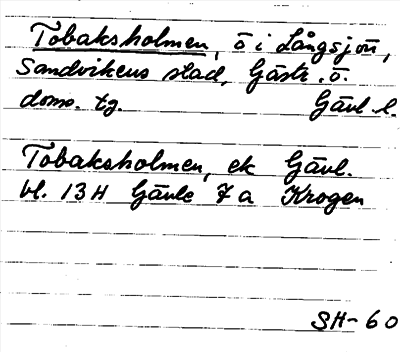 Tobaksholmen, ö i Långsjön,
Sandvikens stad, Gästr. ö.
doms. tg. Gävl. l.
Tobaksholmen, ek Gävl.
bl. 13H Gävle 7a Krogen
SH-60